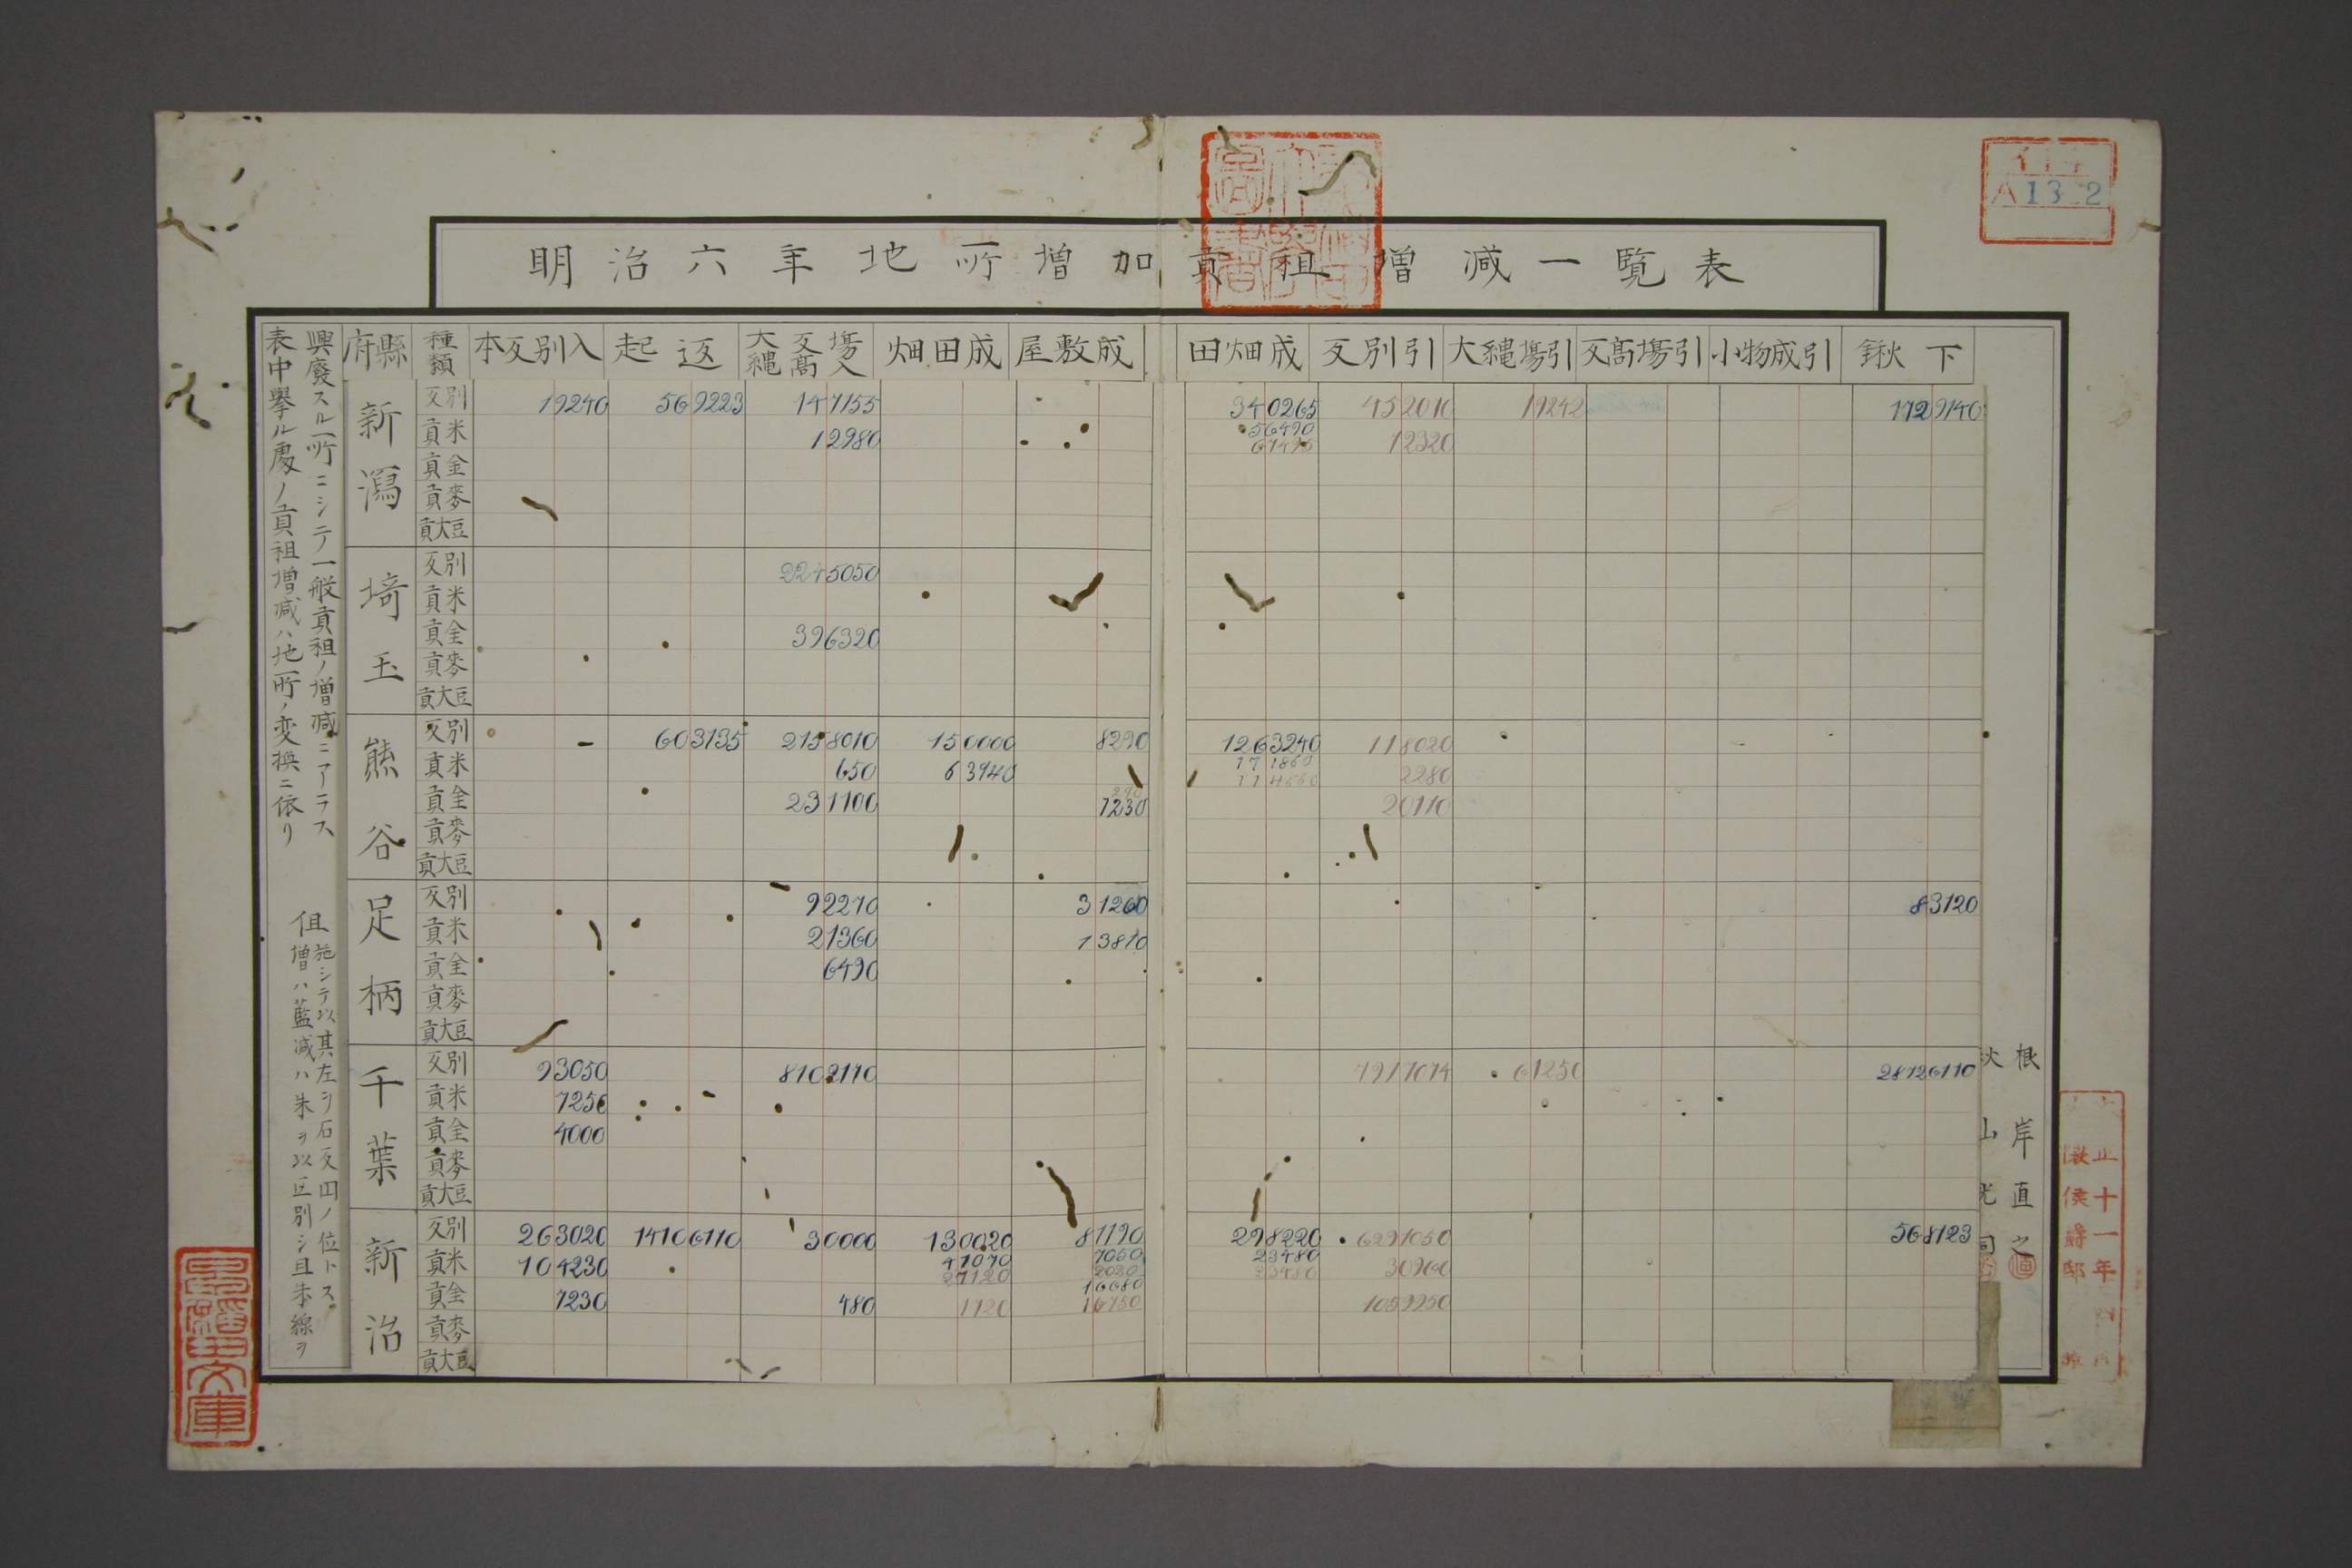 明治六年地所増加貢租増減一覧表
府縣 種類 本反別入 起返 大縄反高場入 畑田成 屋敷成 田畑成 反別引 大縄場引 反高場引 小物成引 鍬下
新潟
反別 19240 569223 147155 340265 452010 19242 1129140
貢米 12980 56490 67495 12320
貢金
貢麥
貢大豆
埼玉
反別 2245050
貢米
貢金 396320
貢麥
貢大豆
熊谷
反別 603135 2158010 150000 8290 1263240 118020
貢米 650 63940 171860 2280
貢金 231100 290 1230 20110
貢麥
貢大豆
足柄
反別 92210 31260 83120
貢米 21360 13810
貢金 6490
貢麥
貢大豆
千葉
反別 93050 8102110 7917014 61250 28126110
貢米 7250
貢金 4000
貢麥
貢大豆
新治
反別 263020 14106110 30000 130020 81190 298220 6291050 568123
貢米 104230 47070 27120 7060 2030 23480 23480 30960
貢金 1230 480 1120 16680 16750 1059950
貢麥
貢大豆
表中擧ル處ノ貢祖増減ハ地所ノ変換ニ依リ
興廢スル所ニシテ一般貢祖ノ増減ニアラス
但
増ハ藍減ハ朱ヲ以区別シ且朱線ヲ
施シテ以其左ヲ石反円ノ位トス
根岸直之
秋山光
文庫